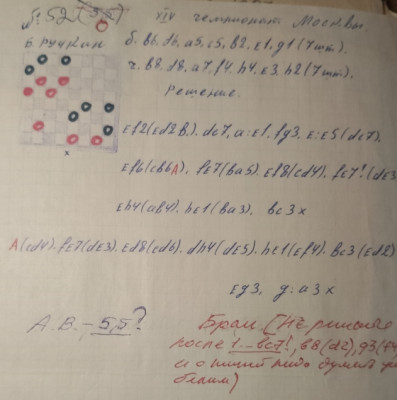 XIV чемпионат Москвы.
б. b6. d6, a5, c5, b2. e1, g1 (7шт).
ч. b8. d8, a7, f4. h4. e3. h2 (7шт).
Решение.
Б. РУЧКИН
x
ef2 (ed2 B). dc7, a:e1. fg3. e:e5 (dc7).
ef6 (cb6 A). fe7 (ba5). ef8 (cd4). fc7! (de3
eh4 (ab4). he1 (ba3). bc3 x
A (cd4). fe7 (de3). ed8 (cd6). dh4 (de5). he1 (ef4). bc3 (ed2)
eg3, g:a3 x
А.В. – 5,5?
Брак. [Нет решения
после 1...bc7!, b8 (d2), g3 (f4
белым)